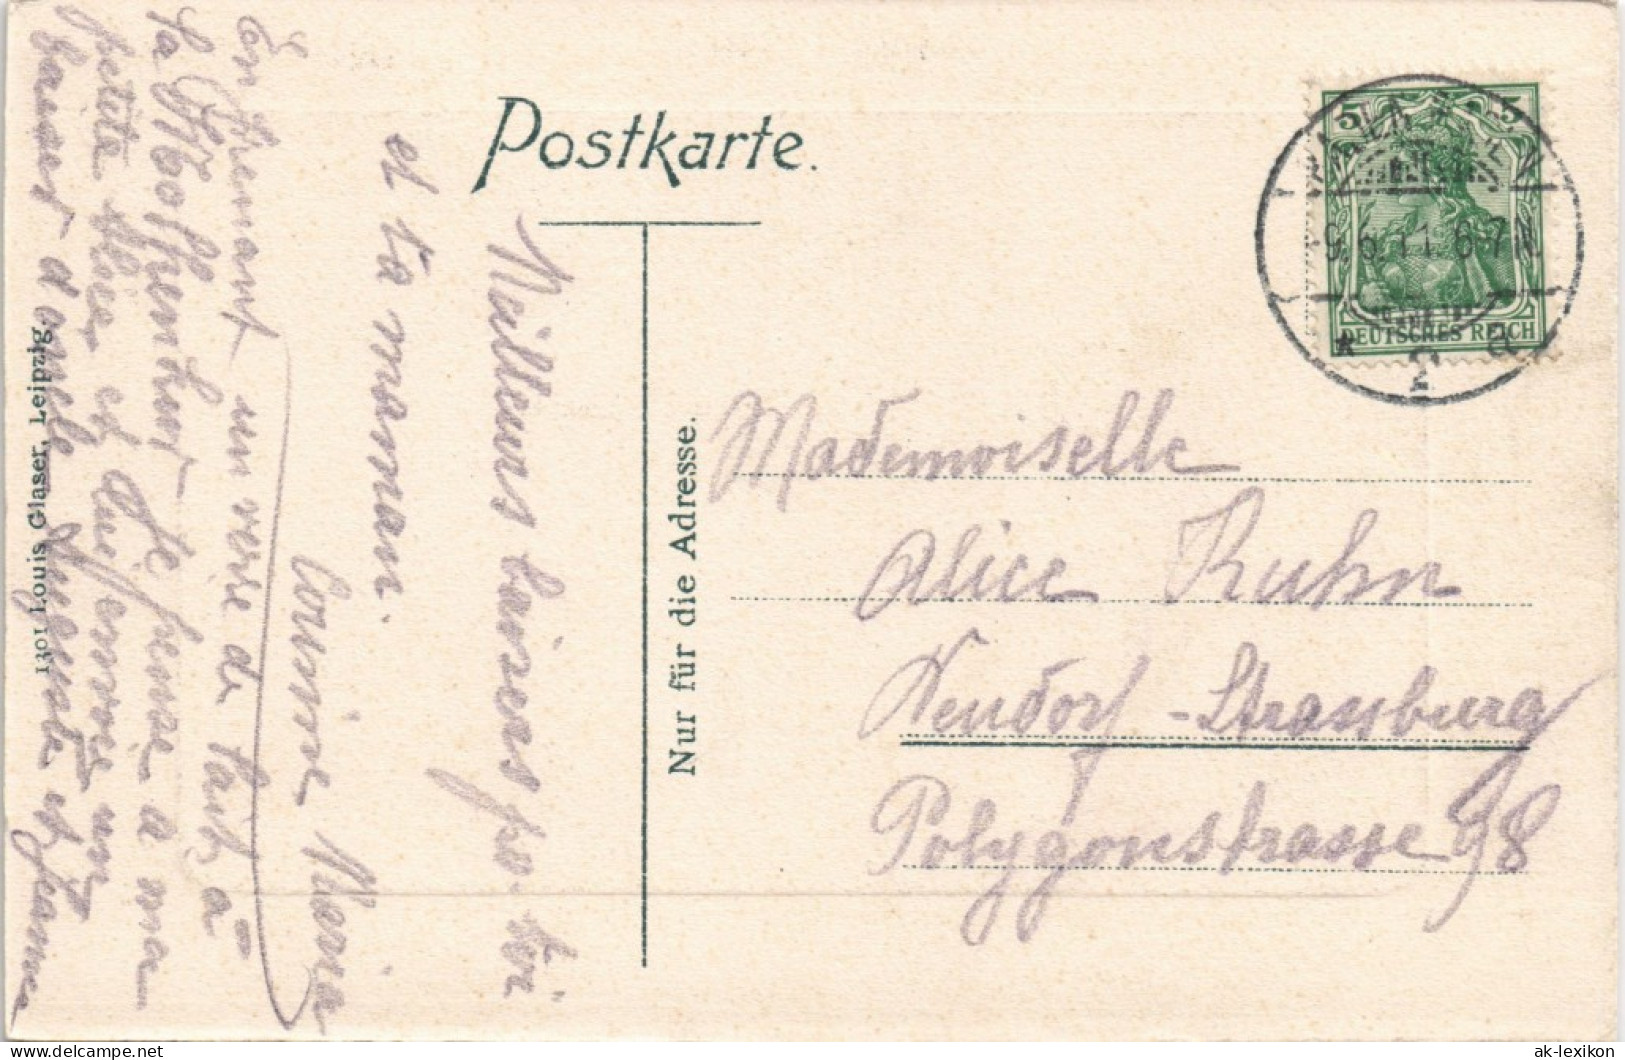 Postkarte.
Nur für die Adresse.
1301 Louis Glaser, Leipzig.
5 5
DEUTSCHES REICH
9.6.11. 6-7N
Mademoiselle
Alice Kuhn
Neudorf-Strassburg
Polygonstrasse 98
En prenant un verre de lait, à
la je pense à ma
petite Alice et lui envoie un
baiser d'oncle et Jeanne
Cousine Maria
et ta maman.
Meilleurs baisers po. toi